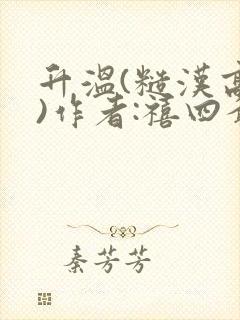 升温(糙漢高
)作者:禧四
秦芳芳